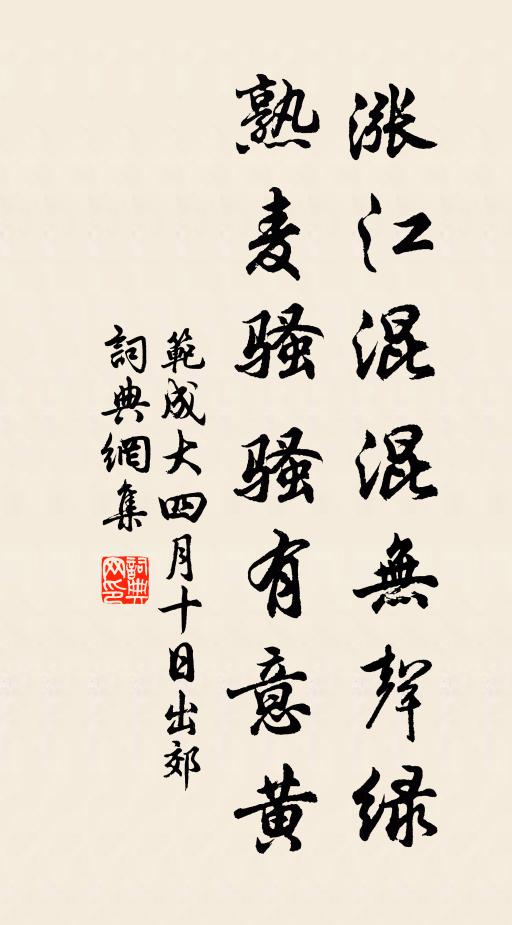 漲江混混無聲綠
熟麦騷騷有意黃
範成大四月十日出郊
詞典網集
詞典網印